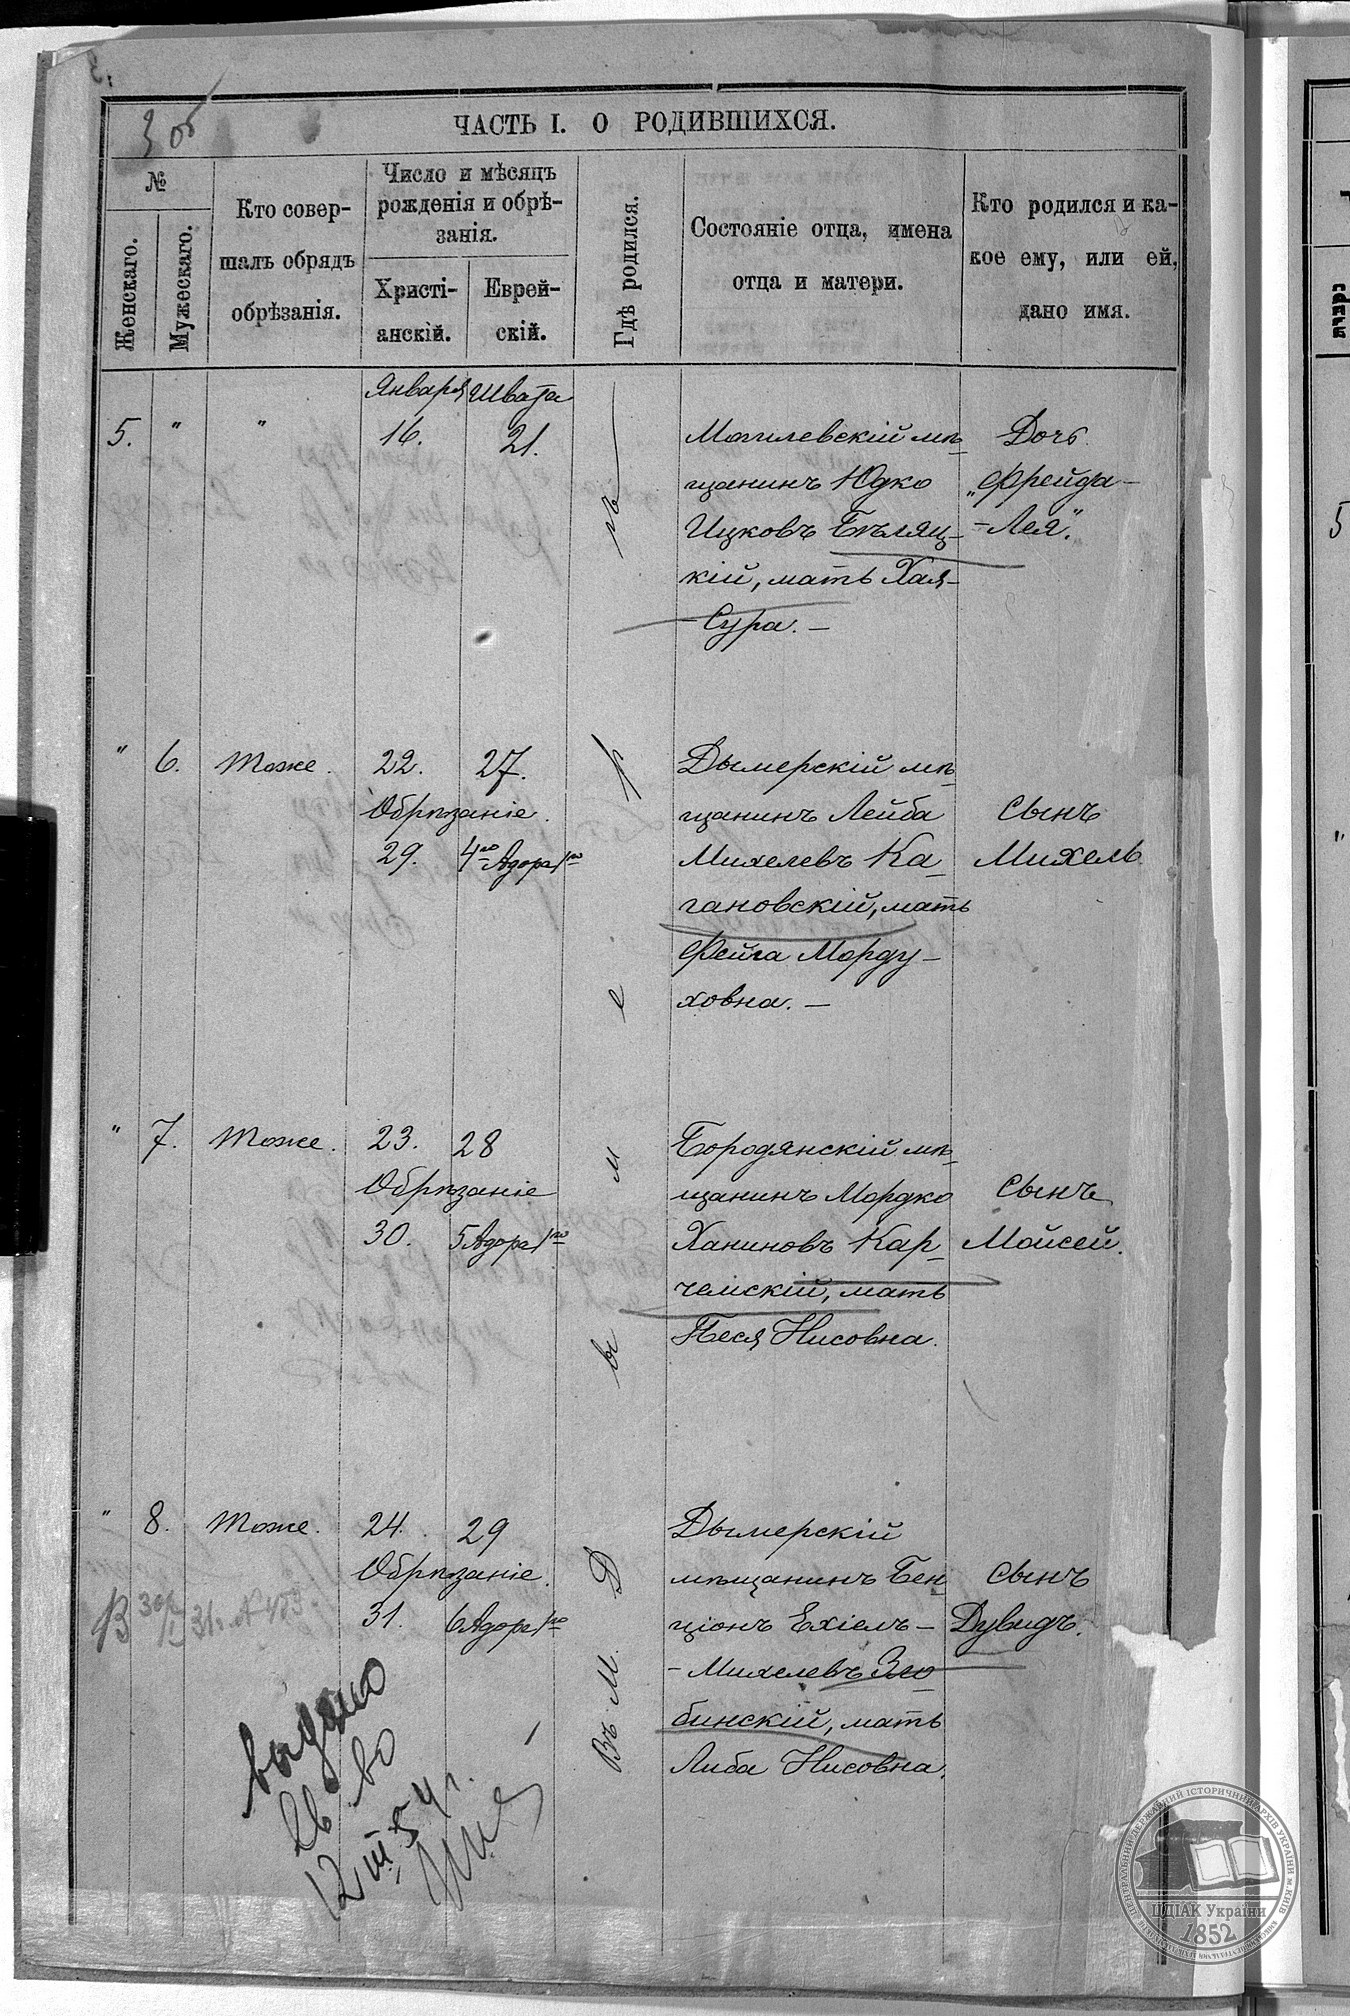 3 об
ЧАСТЬ I. О РОДИВШИХСЯ.
№
Женскаго.
Мужескаго.
Кто совер-
шалъ обрядъ
обрѣзанія.
Число и мѣсяцъ
рожденія и обрѣ-
занія.
Христі-
анскій.
Еврей-
скій.
Гдѣ родился.
Состояніе отца, имена
отца и матери.
Кто родился и ка-
кое ему, или ей,
дано имя.
Января Швата
5. " " 16. 21.
Могилевскій мѣ-
щанинъ Юдко
Ицковъ Бѣляц-
кій, мать Хая-
Сура. —
Дочь
„Фрейда-
-Лея".
" 6. Тоже. 22. 27.
Обрѣзаніе.
29. 4го Адора 1го
Дымерскій мѣ-
щанинъ Лейба
Михелевъ Ка-
гановскій, мать
Фейга Морду-
ховна. —
Сынъ
Михель
" 7. Тоже. 23. 28
Обрѣзаніе
30. 5 Адора 1го
Бородянскій мѣ-
щанинъ Мордко
Ханиновъ Кар-
чемскій, мать
Песя Нисовна.
Сынъ
Мойсей.
" 8. Тоже. 24. 29
Обрѣзаніе.
31. 6 Адора 1го
Дымерскій
мѣщанинъ Бен
ціонъ Ехіель-
-Михелевъ Зло-
бинскій, мать
Либа Нисовна.
Сынъ
Дувидъ.
Въ М. Дымерѣ
31г. №
выдано
св во
12 III 54 г.
ЦЕНТРАЛЬНИЙ ДЕРЖАВНИЙ ІСТОРИЧНИЙ АРХІВ УКРАЇНИ м. КИЇВ
ЦДІАК України
1852
נקבות
5
"